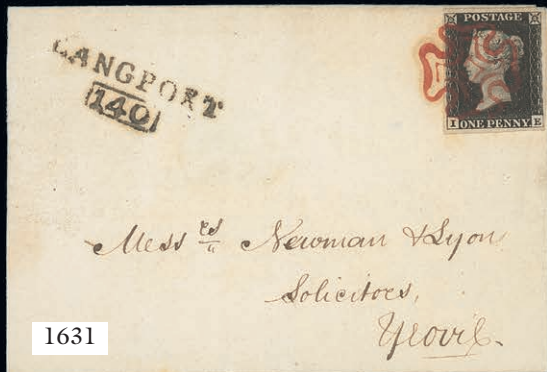 LANGPORT
140
POSTAGE
I ONE PENNY E
Messrs Newman & Lyon
Solicitors,
Yeovil.
1631